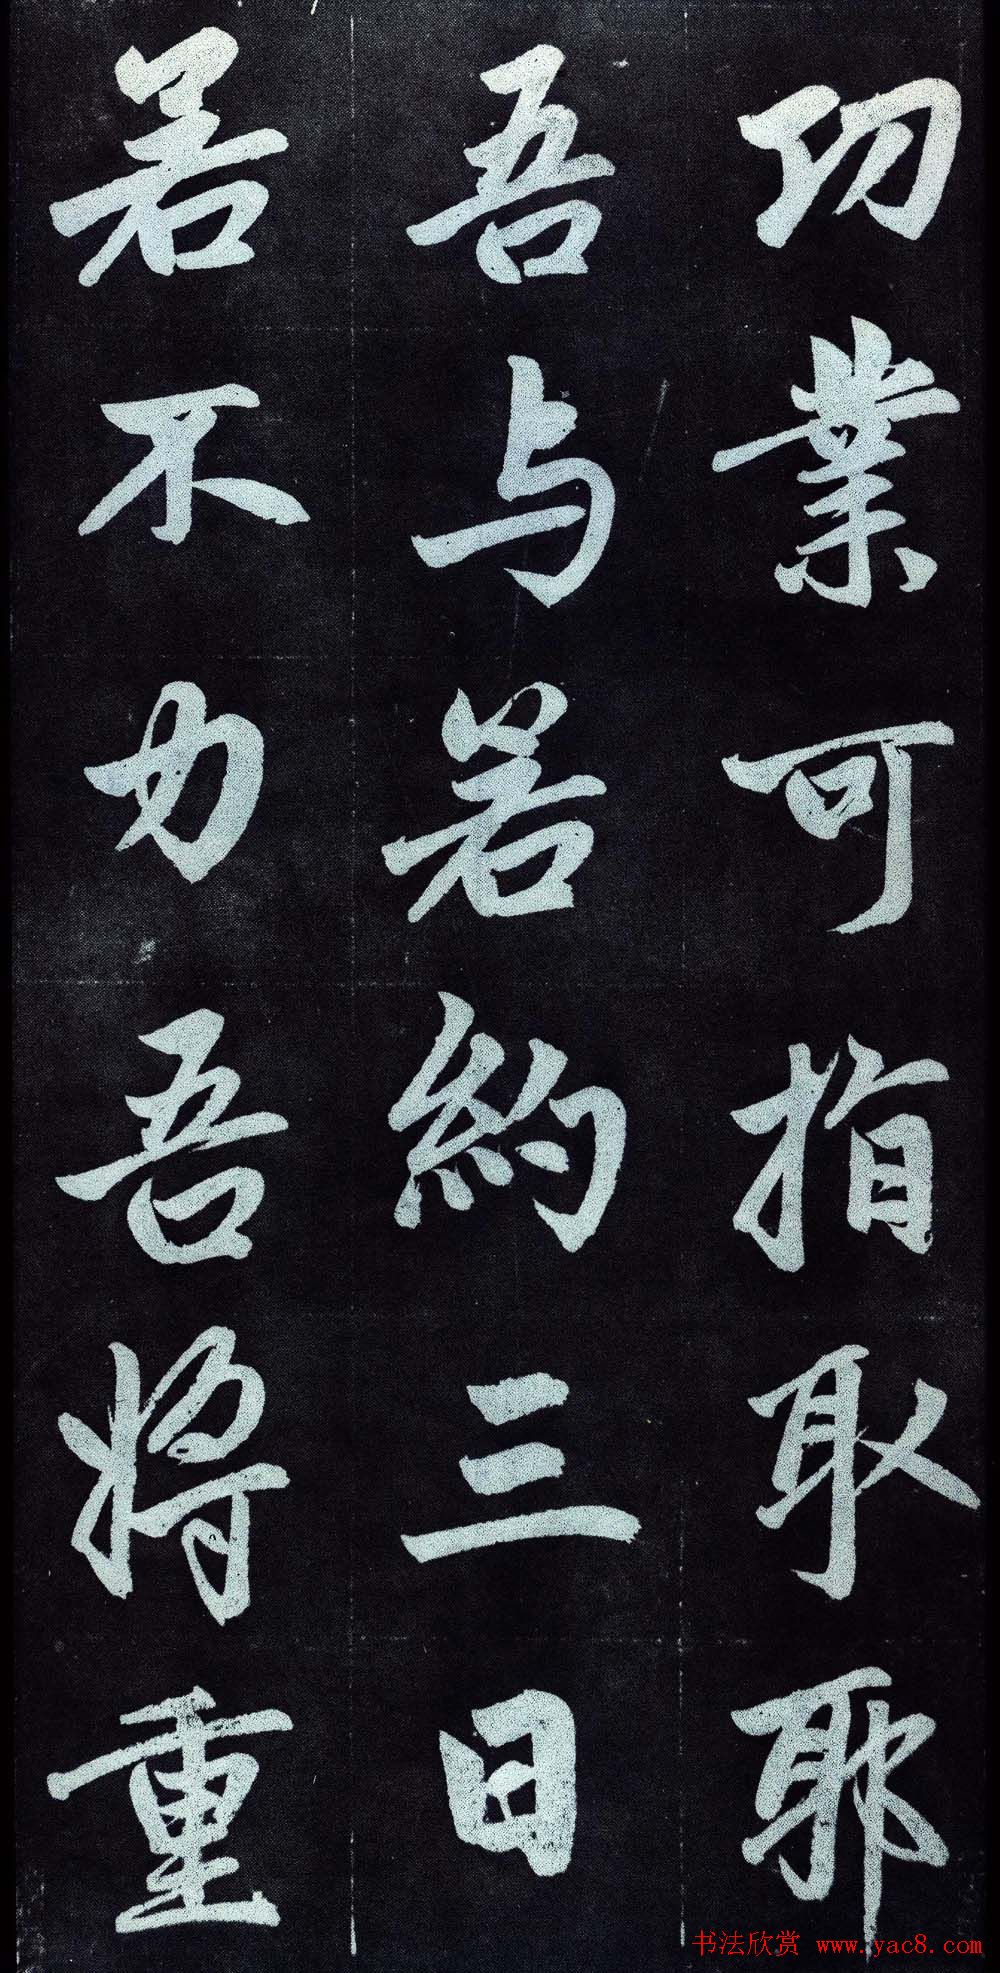 功業可指取耶
吾与若約三日
若不力吾將重
书法欣赏 www.yac8.com